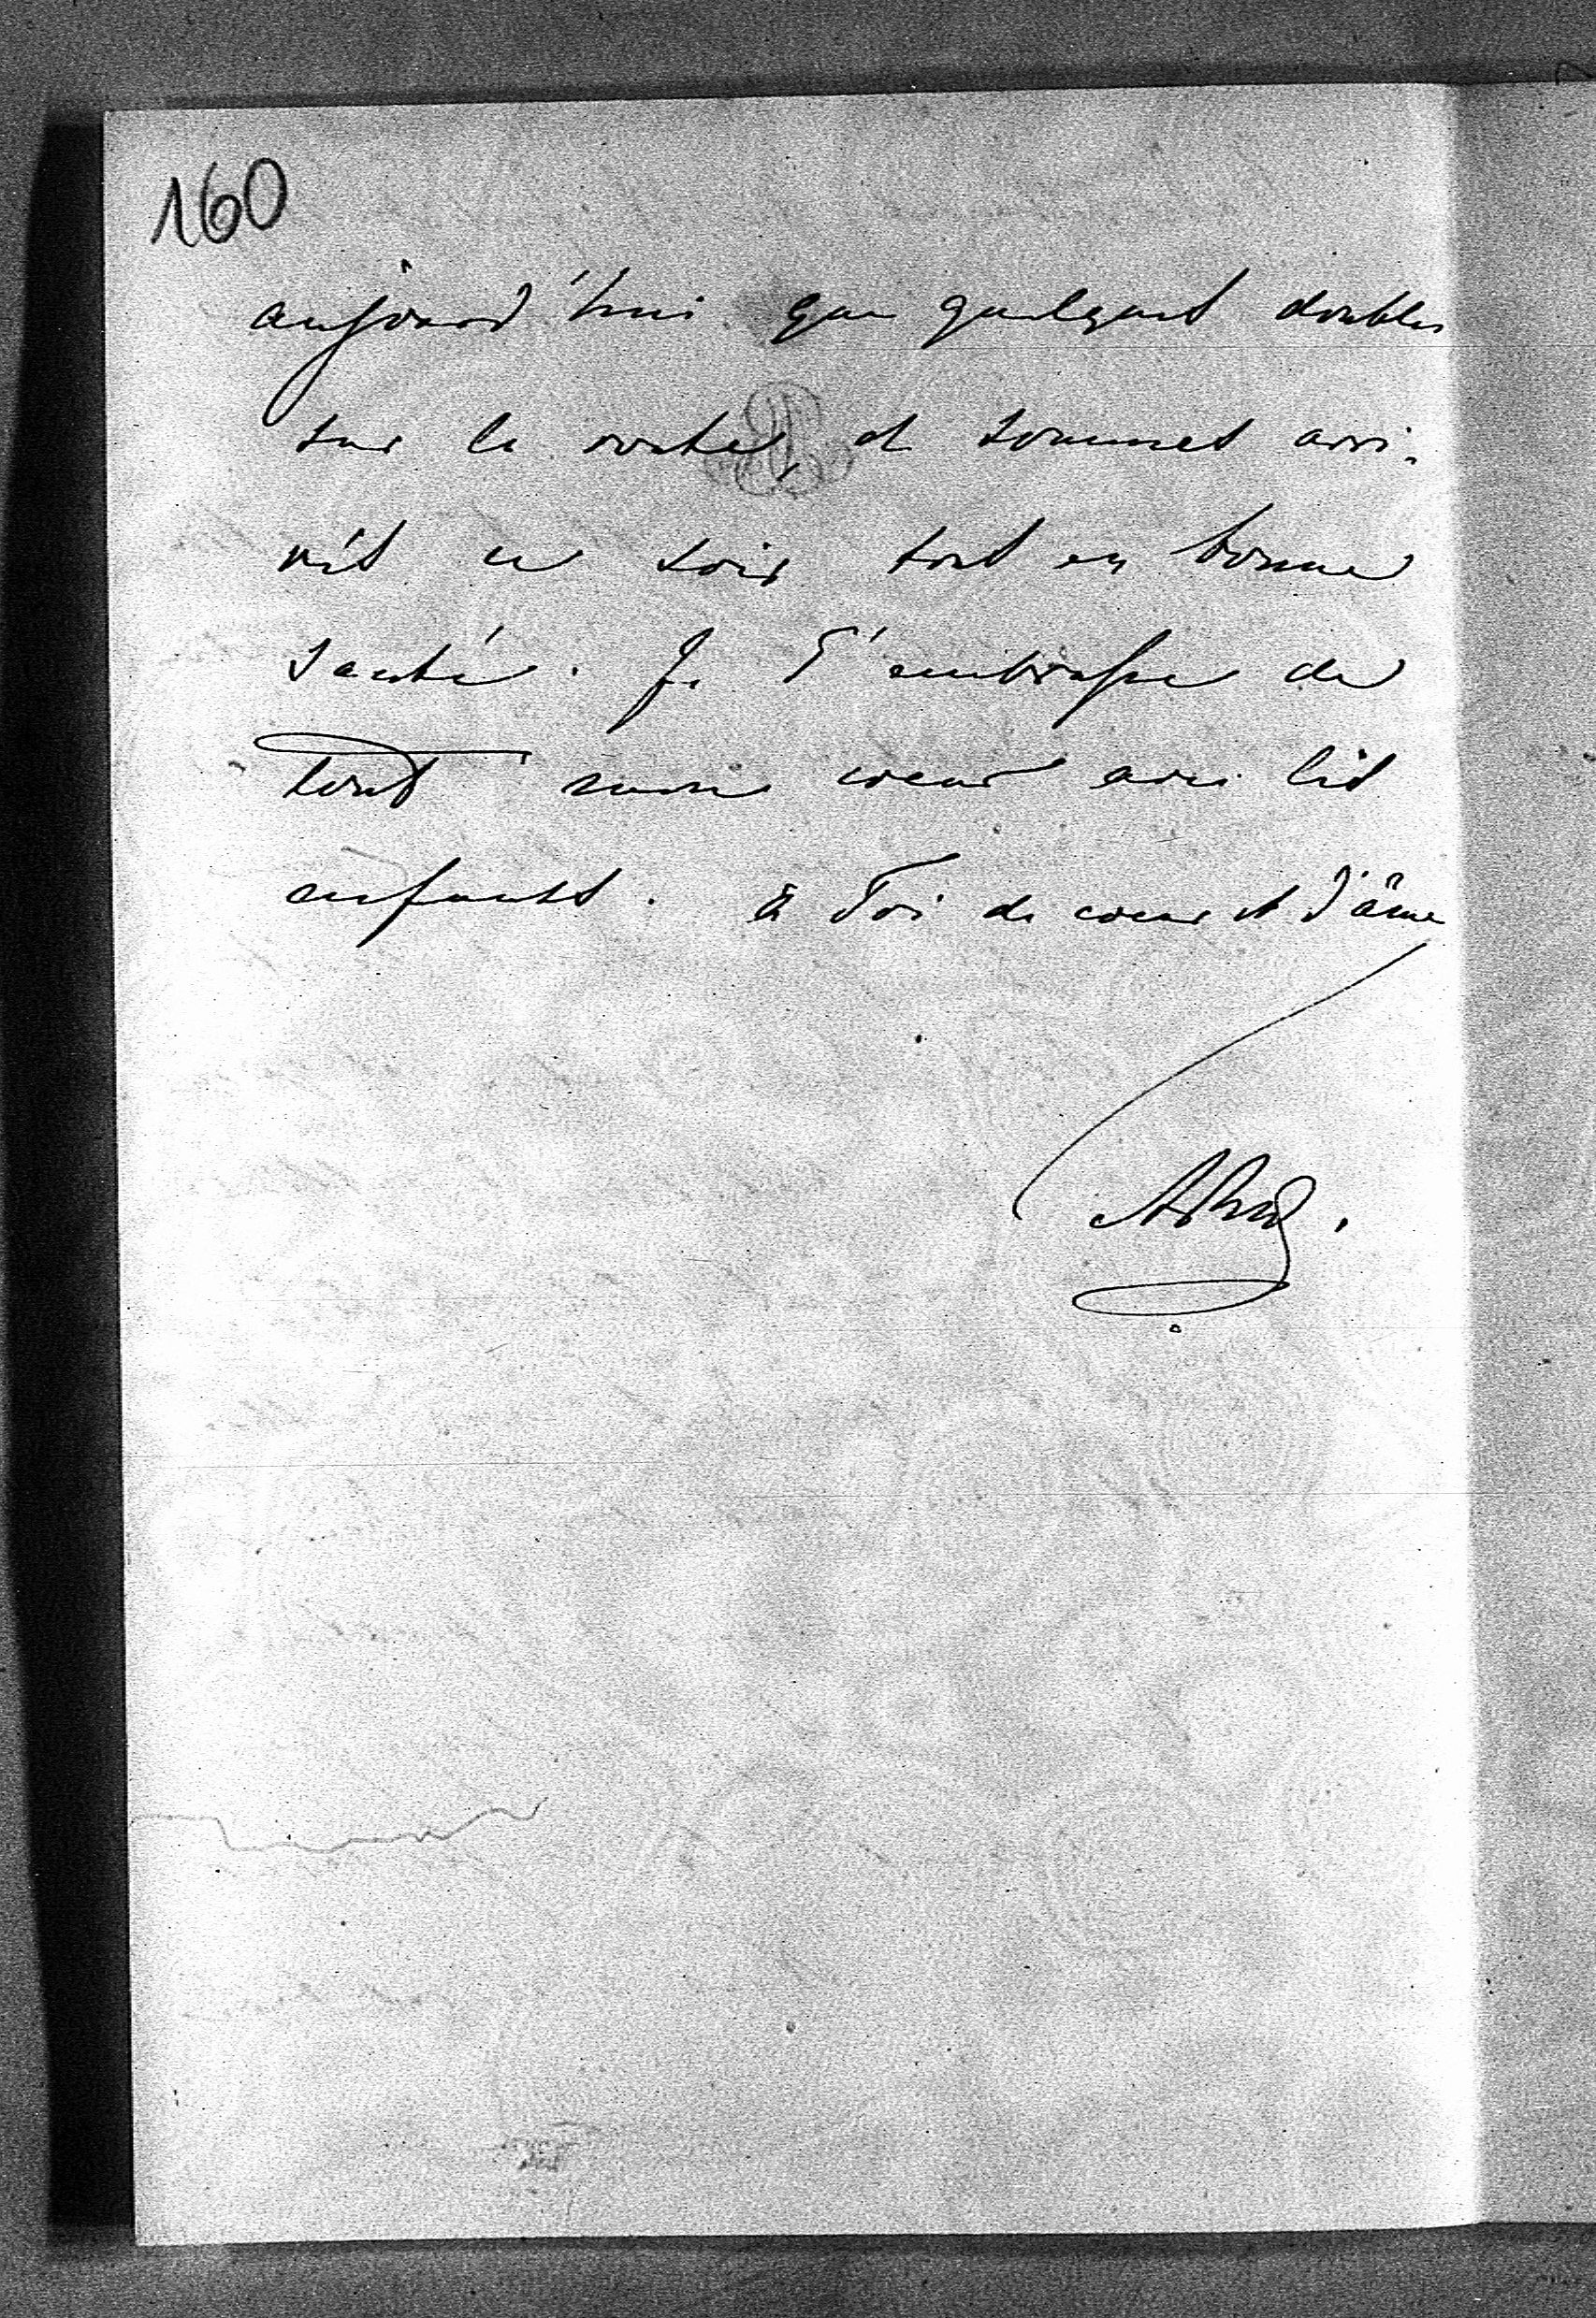 160
aujourd'hui que quelques doubles
sur la route, et sommes arri-
vés ce soir tous en bonne
santé. Je T'embrasse de
tout mon coeur avec les
enfants. à Toi de coeur et d'âme